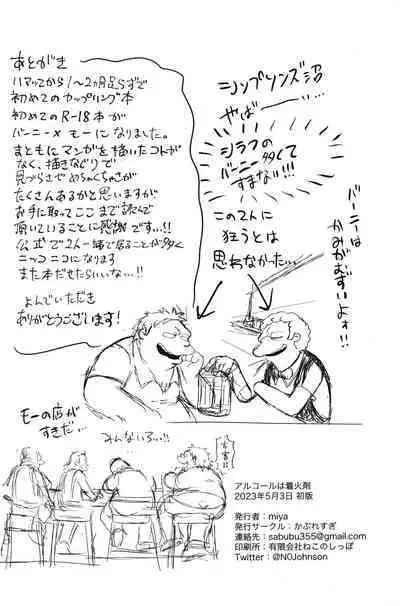 あとがき
ハマってから1〜2ヵ月足らずで
初めてのカップリング本
初めてのR-18本が
バーニー×モーになりました。
まともにマンガを描いたコトが
なく、描きなぐりで
見づらさでめちゃくちゃが
たくさんあるかと思いますが
お手に取ってここまで読んで
頂いていることに感謝です…!!
公式で2人一緒で居ることが多く
ニッコニコになります
また本だせたらいいな…!!
よんでいただき
ありがとうございます!
シンプソンズ沼
やば〜…
シラフの
バーニー多くて
すまない!!!
この2人に
狂うとは
思わなかった…
バーニーは
かみがむずいよォ!!
モーの店が
すきだ…
みんないる…!!
アルコールは着火剤
2023年5月3日 初版
発行者：miya
発行サークル：かぶれすぎ
連絡先：sabubu355@gmail.com
印刷所：有限会社ねこのしっぽ
Twitter：@N0Johnson